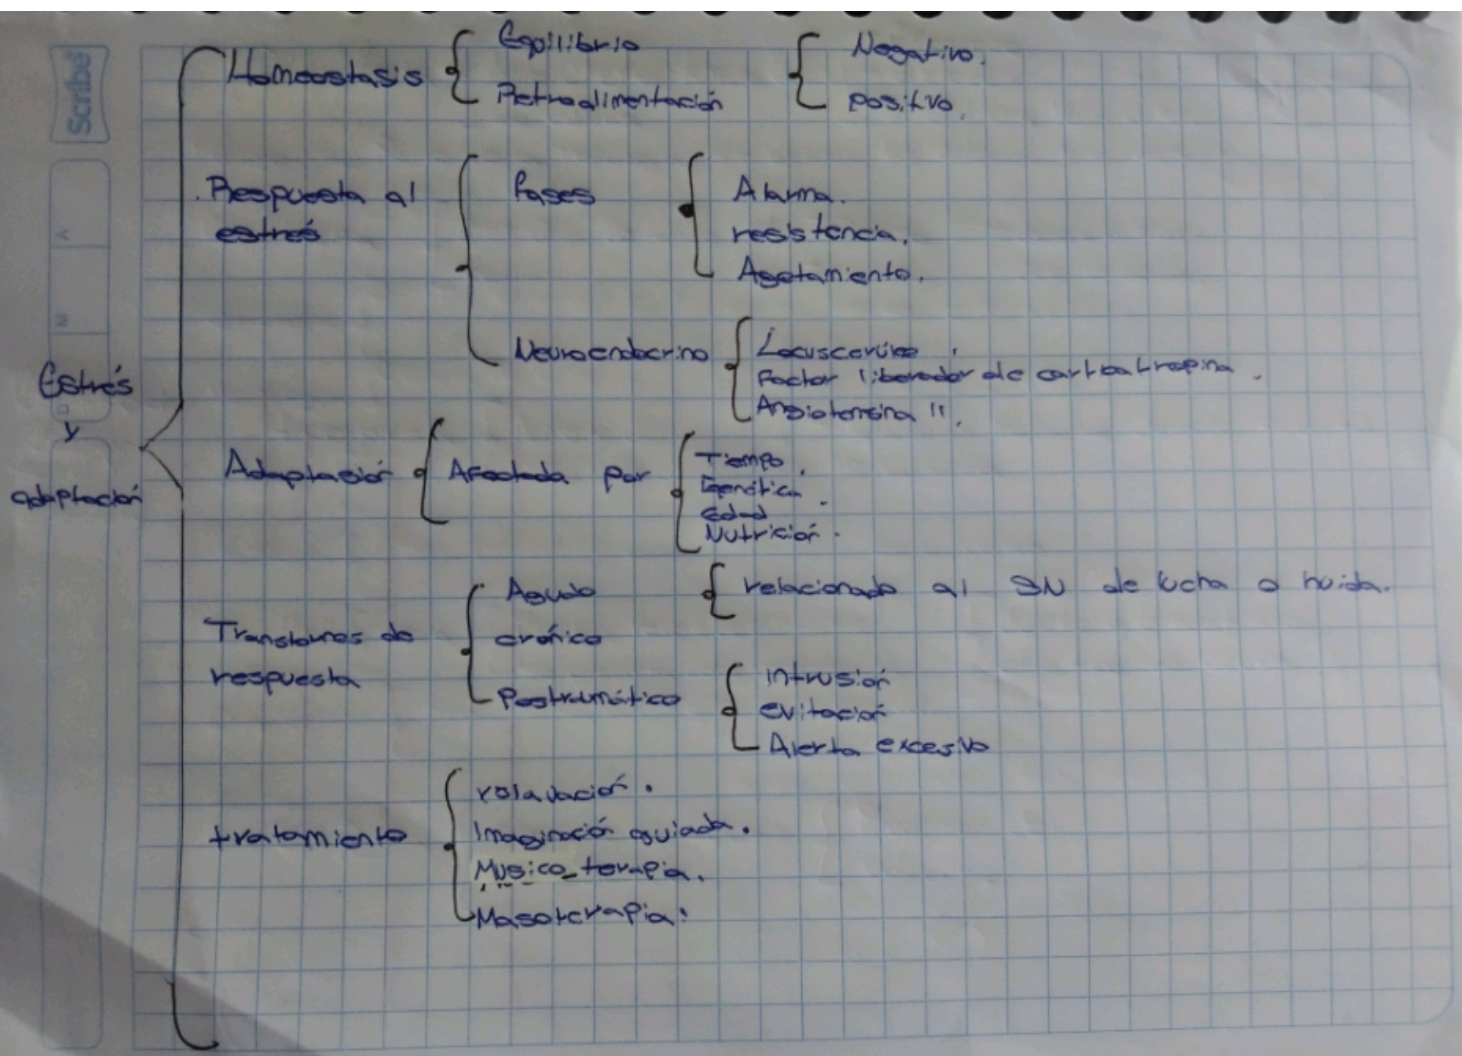 Scribe
Homeostasis
Equilibrio
Retroalimentación
Negativo.
positivo.
Respuesta al
estrés
fases
Alarma.
resistencia.
Agotamiento.
Neuroendocrino
Locus
Factor liberador de
Angiotensina II.
Estrés
y
adaptación
Adaptación
Afectada por
Tiempo.
Genética.
edad
Nutrición.
Transtornos de
respuesta
Agudo
relacionado al SN de lucha o huida.
crónico
Postraumático
intrusión
evitación
Alerta excesivo
tratamiento
relajación.
Imaginación guiada.
Musico_terapia.
Masoterapia.